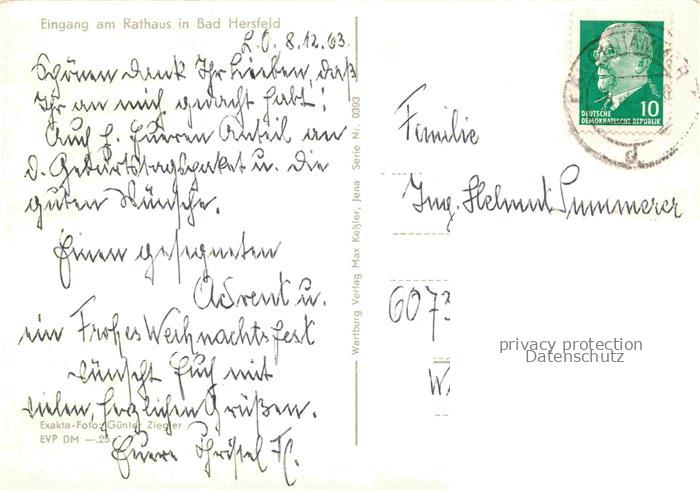 Eingang am Rathaus in Bad Hersfeld
L.O. 8.12.63.
Schönen Dank Ihr Lieben, daß
Ihr an mich gedacht habt!
Auch f. Eueren Anteil an
d. Geburtstagspaket u. die
guten Wünsche.
Einen gesegneten
Advent u.
ein Frohes Weihnachtsfest
wünscht Euch mit
vielen, herzlichen Grüßen.
Exakta-Foto: Günter Ziegler
EVP DM —.25
Euere
Wartburg Verlag Max Keßler, Jena Serie Nr. 0393
10
DEUTSCHE
DEMOKRATISCHE REPUBLIK
Familie
Ing. Helmut Summerer
6073
privacy protection
Datenschutz